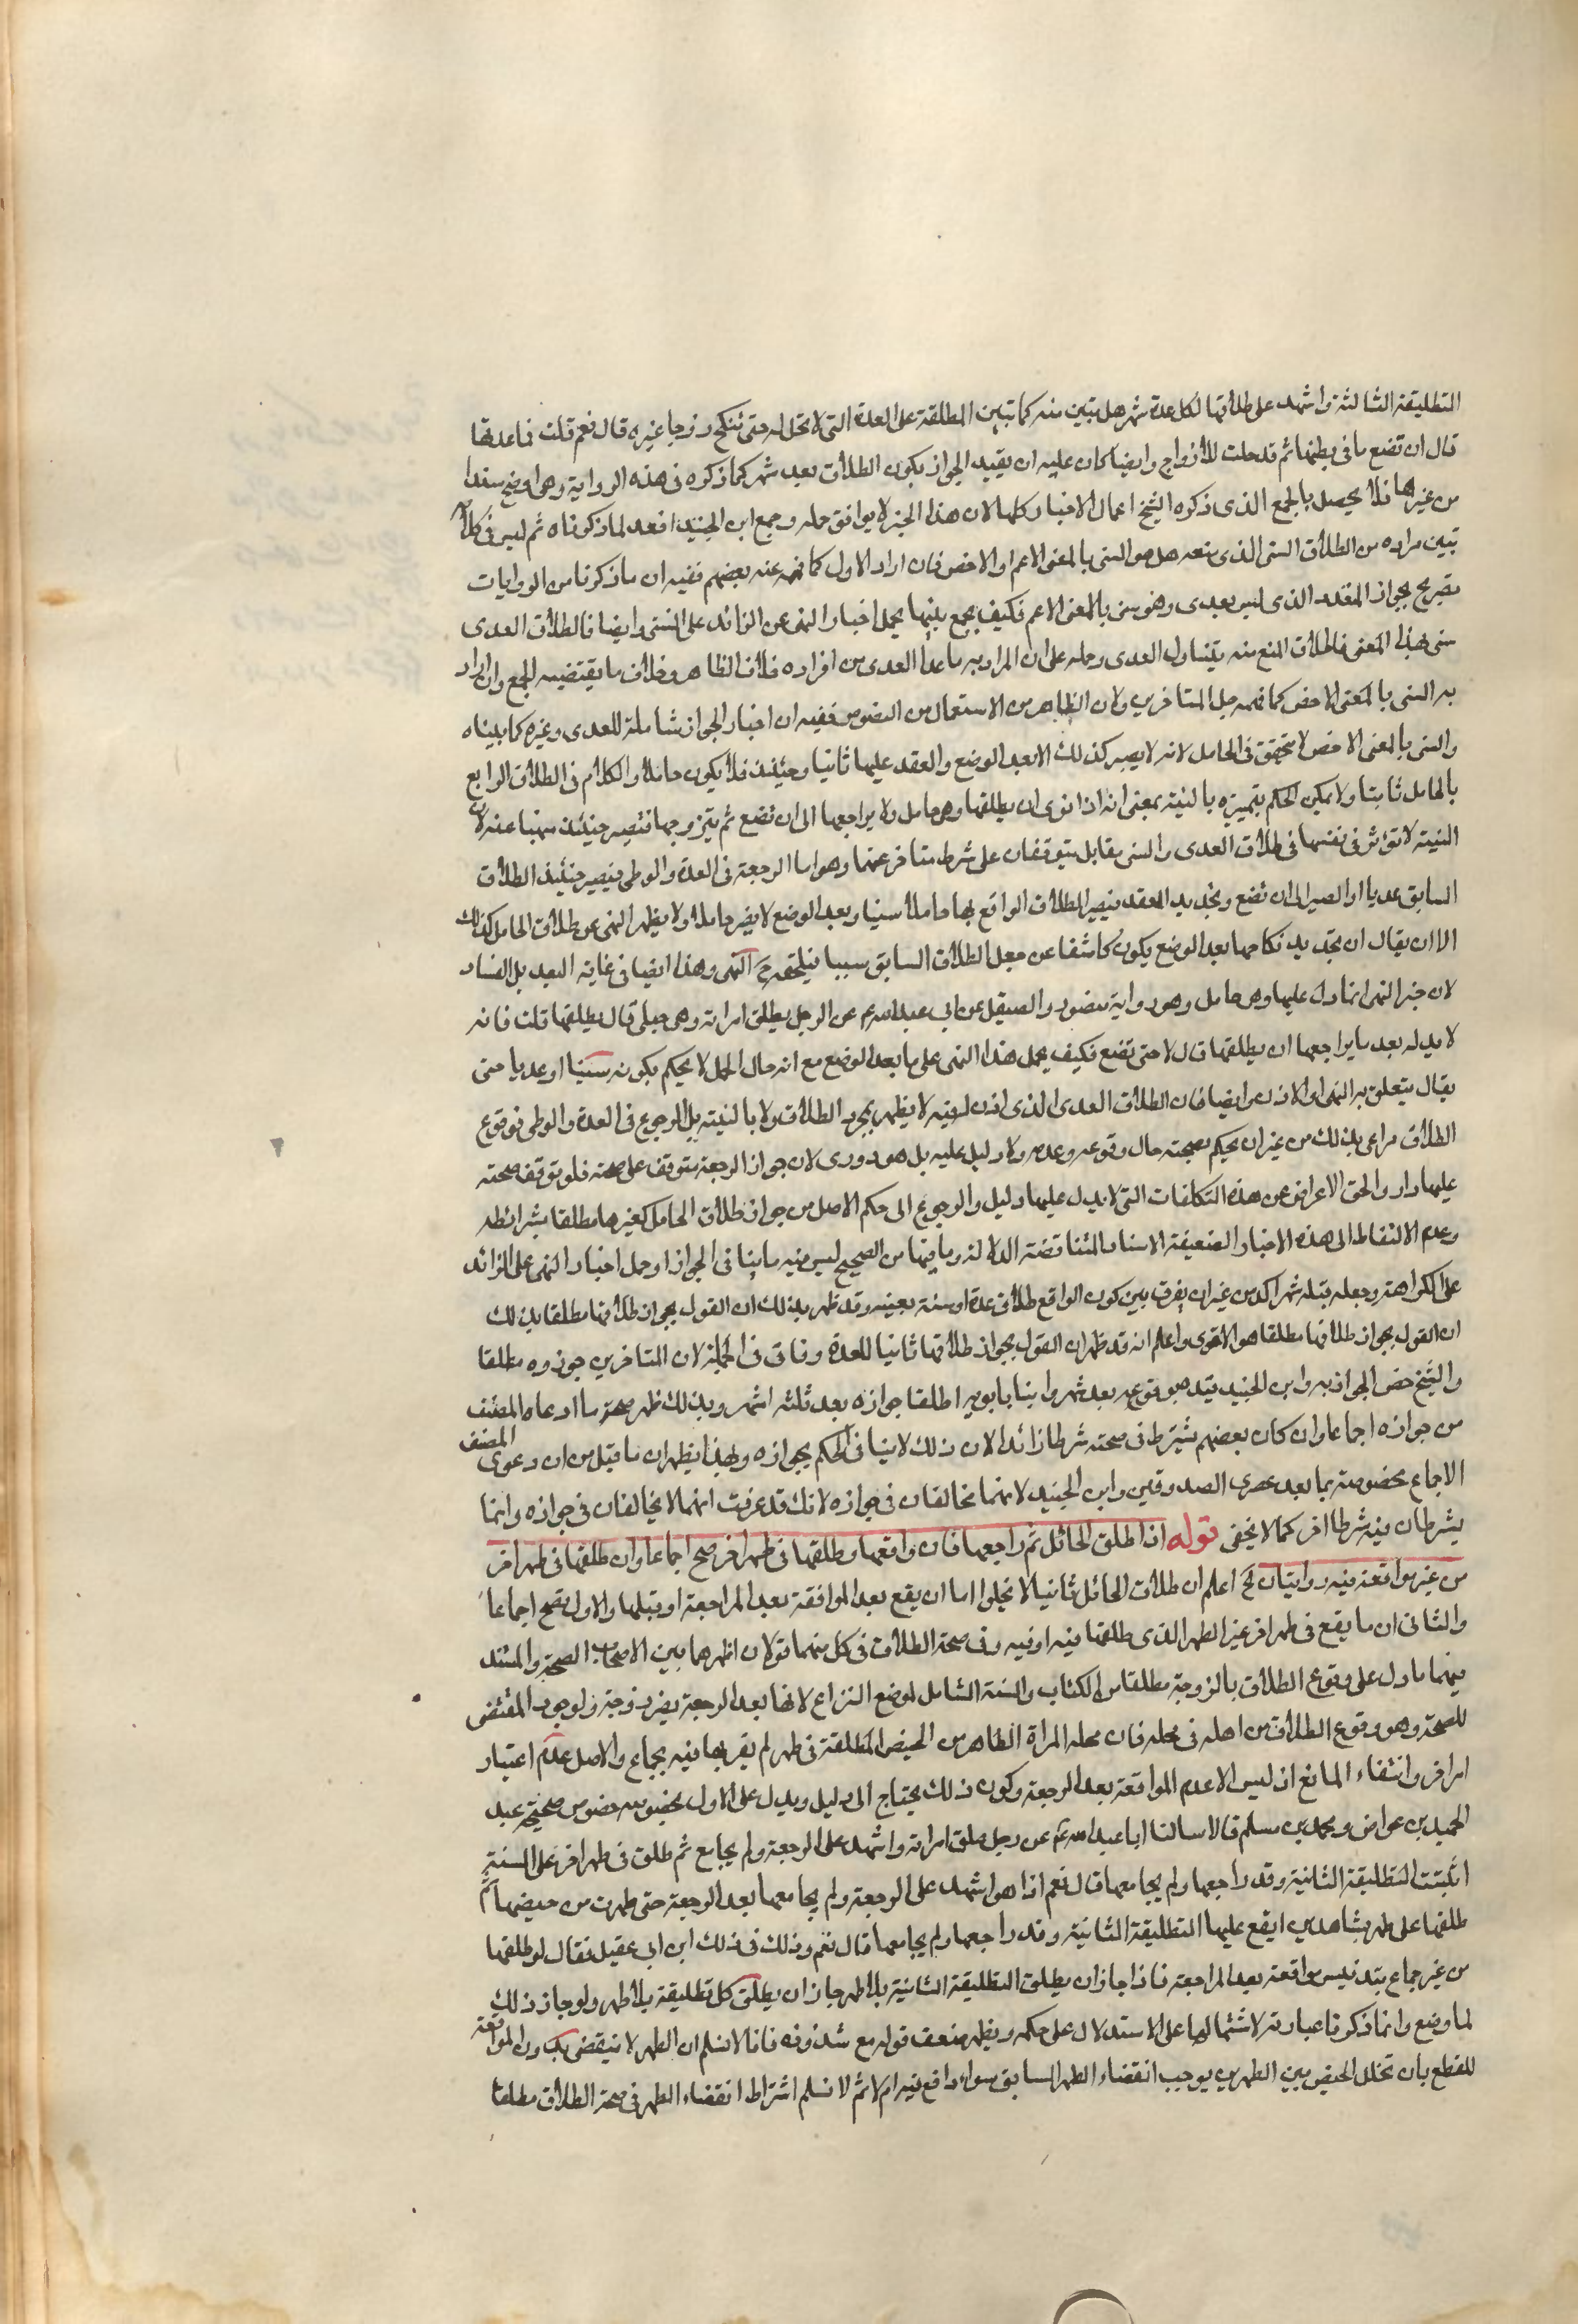 التطليقة الثالثة واشهد على طلاقها لكل عدة شهر هل تبين منه كما تبين المطلقة على العدة التي لا تحل له حتى تنكح زوجا غيره قال نعم قلت فما عدتها
قال ان تضع ما في بطنها ثم قد حلت للازواج وايضا كان عليه ان يقيد الجواز بكون الطلاق بعد شهر كما ذكره في هذه الرواية وهي اوضح سندا
من غيرها فلا يحصل بالجمع الذي ذكره الشيخ اعمال الاخبار كلها لان هذا الخبر لا يوافق حمله وجمع ابن الجنيد افعد لما ذكرناه ثم ليس في كلام
تبين مراده من الطلاق السني الذي منعه هل هو السني بالمعنى الاعم او الاخص فان اراد الاول كما فهمه عنه بعضهم ففيه ان ما ذكرنا من الروايات
تصريح بجواز المتعدد الذي ليس بعدي وهو سني بالمعنى الاعم فكيف يجمع بينها بحمل اخبار النهي عن الزائد على السني وايضا فالطلاق العدي
سني بهذا المعنى فاطلاق المنع منه يتناول العدي وحمله على ان المراد به ما عدا العدي من افراده خلاف الظاهر وخلاف ما يقتضيه الجمع وان اراد
به السني بالمعنى الاخص كما فهمه جل المتاخرين ولان الظاهر من الاستعمال من النصوص ففيه ان اخبار الجواز شاملة للعدي وغيره كما بيناه
والسني بالمعنى الاخص لا يتحقق في الحامل لانه لا يصير كذلك الا بعد الوضع والعقد عليها ثانيا وحينئذ فلا يكون حاملا والكلام في الطلاق الواقع
بالحامل ثانيا ولا يمكن الحكم بتميزه بالنية بمعنى انه اذا نوى ان يطلقها وهي حامل ولا يراجعها الى ان تضع ثم يتزوجها فتصير حينئذ منهيا عنه لان
النية لا تؤثر في نفسها في طلاق العدي والسني مقابل يتوقفان على شرط متاخر عنهما وهو اما الرجعة في العدة والوطي فيصير حينئذ الطلاق
السابق عديا او الصبر الى ان تضع وتجديد العقد فيصير الطلاق الواقع بها حاملا سنيا وبعد الوضع لا يصير حاملا ولا يظهر النهي عن طلاق الحامل كذلك
الا ان يقال ان تجديد نكاحها بعد الوضع يكون كاشفا عن جعل الطلاق السابق سببا فيلحقه ح النهي وهذا ايضا في غاية البعد بل الفساد
لان خبر النهي انما دل عليها وهي حامل وهو رواية منصور والصيقل عن ابي عبد الله ع عن الرجل يطلق امراته وهي حبلى قال يطلقها قلت فانه
لا بد له بعد ما يراجعها ان يطلقها قال لا حتى تضع فكيف يحمل هذا النهي على ما بعد الوضع مع انه حال الحمل لا يحكم بكونه سنيا او عديا حتى
يقال يتعلق به النهي او الاذن وايضا فان الطلاق العدي الذي اذن فيه لا يظهر بمجرد الطلاق ولا بالنية بل بالرجوع في العدة والوطي فوقوع
الطلاق مراعى بذلك من غير ان يحكم بصحته حال وقوعه وعدمه ولا دليل عليه بل هو دوري لان جواز الرجعة متوقف على صحته فلو توقف صحته
عليها دار والحق الاعراض عن هذه التكلفات التي لا يدل عليها دليل والرجوع الى حكم الاصل من جواز طلاق الحامل كغيرها مطلقا بشرائطه
وعدم الالتفات الى هذه الاخبار الضعيفة الاسناد المتناقضة الدلالة وما فيها من الصحيح ليس فيه ما ينافي الجواز او حمل اخبار النهي على الزائد
على الكراهة وجعله قبله شهر اكد من غير ان يفرق بين كون الواقع طلاق عدة او سنة بعينه وقد ظهر بذلك ان القول بجواز طلاقها مطلقا بذلك
ان القول بجواز طلاقها مطلقا هو الاقوى واعلم انه قد ظهر ان القول بجواز طلاقها ثانيا للعدة وفاقي في الجملة لان المتاخرين جوزوه مطلقا
والشيخ خص الجواز به وابن الجنيد قيده بوقوعه بعد شهر وابنا بابويه اطلقا جوازه بعد ثلثة اشهر وبذلك ظهر صحة ما ادعاه المصنف
من جوازه اجماعا وان كان بعضهم يشترط في صحته شرطا زائدا لان ذلك لا ينافي الحكم بجوازه وبهذا يظهر ان ما قيل من ان دعوى المصنف
الاجماع مخصوصة بما بعد عصري الصدوقين وابن الجنيد لانهما مخالفان في جوازه لانك قد عرفت انهما لا يخالفان في جوازه وانما
يشرطان فيه شرطا اخر كما لا يخفى قوله اذا طلق الحائل ثم راجعها فان واقعها وطلقها في طهر اخر صح اجماعا وان طلقها في طهر اخر
من غير مواقعة فيه روايتان الخ اعلم ان طلاق الحائل ثانيا لا يخلو اما ان يقع بعد المواقعة بعد المراجعة او قبلها والاول يصح اجماعا
والثاني ان ما يقع في طهر اخر غير الطهر الذي طلقها فيه او فيه وفي صحة الطلاق في كل منهما قولان اظهرهما بين الاصحاب الصحة والمستند
فيهما ما دل على وقوع الطلاق بالزوجة مطلقا من الكتاب والسنة الشامل لموضع النزاع لانها بعد الرجعة يصير زوجة ولوجود المقتضي
للصحة وهو وقوع الطلاق من اهله في محله فان محله المراة الطاهر من الحيض المطلقة في طهر لم يقربها فيه بجماع والاصل عدم اعتبار
امر اخر وانتفاء المانع اذ ليس الا عدم المواقعة بعد الرجعة وكون ذلك يحتاج الى دليل ويدل على الاول بخصوصه خصوص صحيحة عبد
الحميد بن عواض ومحمد بن مسلم قالا سالنا ابا عبد الله ع عن رجل طلق امراته واشهد على الرجعة ولم يجامع ثم طلق في طهر اخر على السنة
اتثبت التطليقة الثانية وقد راجعها ولم يجامعها قال نعم اذا هو اشهد على الرجعة ولم يجامعها بعد الرجعة حتى طهرت من حيضها ثم
طلقها على طهر بشاهدين ايقع عليها التطليقة الثانية وقد راجعها ولم يجامعها قال نعم وذلك في ذلك ابن ابي عقيل فقال لو طلقها
من غير جماع بتدنيس مواقعة بعد المراجعة فاذا جاز ان يطلق التطليقة الثانية بلا طهر جاز ان يطلق كل تطليقة بلا طهر ولو جاز ذلك
لما وضع وانما ذكرنا عبارته لاشتمالها على الاستدلال على حكمه ويظهر ضعف قوله مع شذوذه فانا لا نسلم ان الطهر لا ينقضي بدون المواقعة
للقطع بان تخلل الحيض بين الطهرين يوجب انقضاء الطهر السابق سواء واقع فيه ام لا ثم لا نسلم اشتراط انقضاء الطهر في صحة الطلاق مطلقا